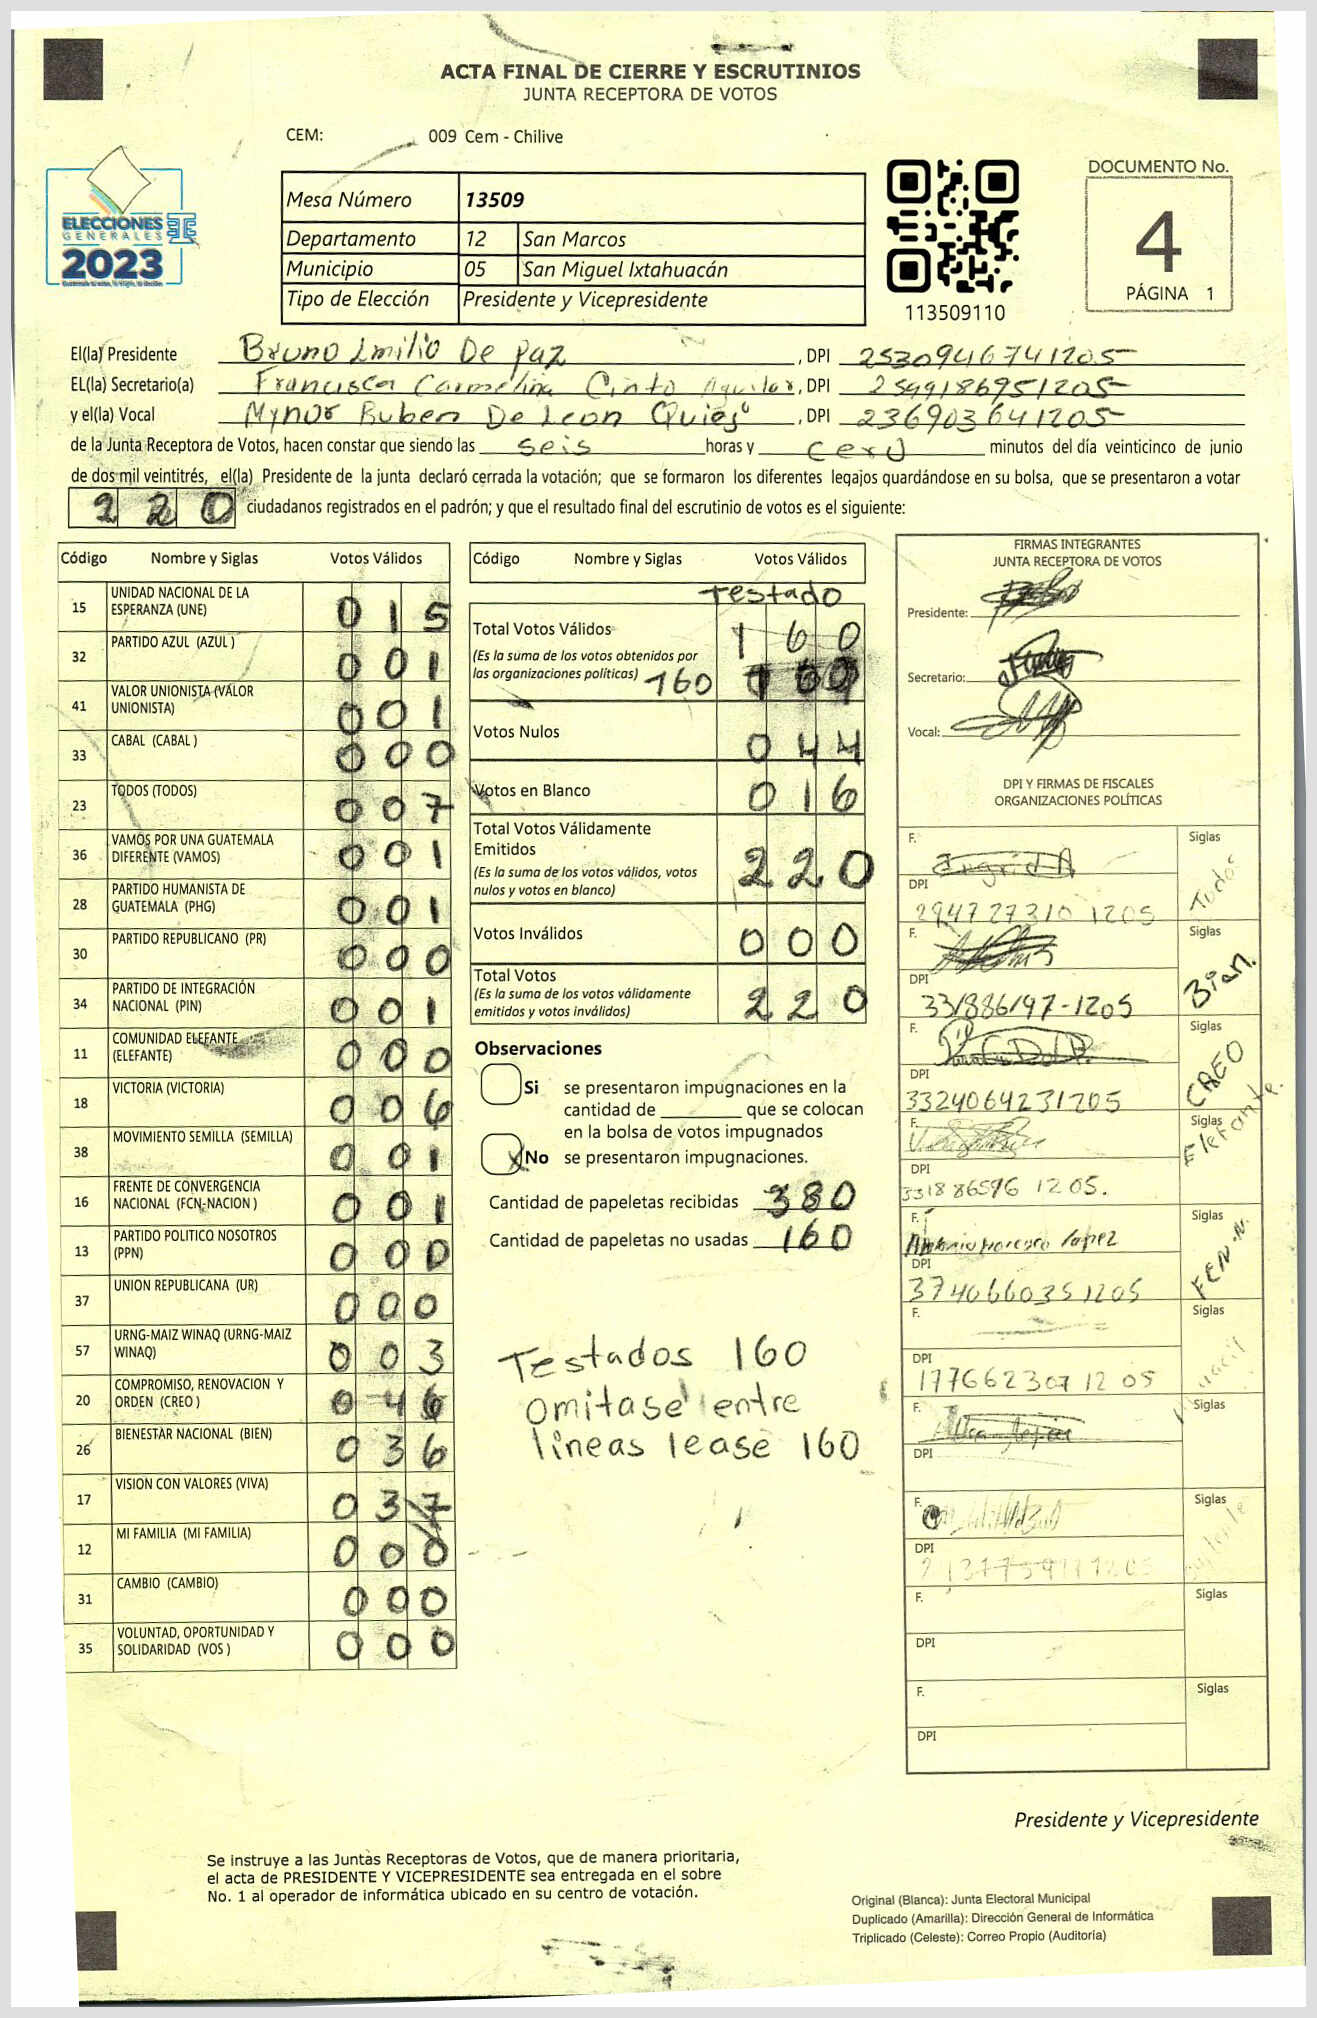 ACTA FINAL DE CIERRE Y ESCRUTINIOS
JUNTA RECEPTORA DE VOTOS
CEM: 009 Cem - Chilive
ELECCIONES
GENERALES
2023
Mesa Número 13509
Departamento 12 San Marcos
Municipio 05 San Miguel Ixtahuacán
Tipo de Elección Presidente y Vicepresidente
113509110
DOCUMENTO No.
4
PÁGINA 1
El(la) Presidente Bruno Emilio De Paz, DPI 2530946741205
EL(la) Secretario(a) Francisca Carmelina Cinto Aguilar, DPI 2599186951205
y el(la) Vocal Mynor Ruben De Leon, DPI 236903641205
de la Junta Receptora de Votos, hacen constar que siendo las seis horas y cero minutos del día veinticinco de junio
de dos mil veintitrés, el(la) Presidente de la junta declaró cerrada la votación; que se formaron los diferentes legajos guardándose en su bolsa, que se presentaron a votar
220 ciudadanos registrados en el padrón; y que el resultado final del escrutinio de votos es el siguiente:
Código Nombre y Siglas Votos Válidos
15 UNIDAD NACIONAL DE LA ESPERANZA (UNE) 015
32 PARTIDO AZUL (AZUL ) 001
41 VALOR UNIONISTA (VALOR UNIONISTA) 001
33 CABAL (CABAL ) 000
23 TODOS (TODOS) 007
36 VAMOS POR UNA GUATEMALA DIFERENTE (VAMOS) 001
28 PARTIDO HUMANISTA DE GUATEMALA (PHG) 001
30 PARTIDO REPUBLICANO (PR) 000
34 PARTIDO DE INTEGRACIÓN NACIONAL (PIN) 001
11 COMUNIDAD ELEFANTE (ELEFANTE) 000
18 VICTORIA (VICTORIA) 006
38 MOVIMIENTO SEMILLA (SEMILLA) 001
16 FRENTE DE CONVERGENCIA NACIONAL (FCN-NACION ) 001
13 PARTIDO POLITICO NOSOTROS (PPN) 000
37 UNION REPUBLICANA (UR) 000
57 URNG-MAIZ WINAQ (URNG-MAIZ WINAQ) 003
20 COMPROMISO, RENOVACION Y ORDEN (CREO ) 046
26 BIENESTAR NACIONAL (BIEN) 036
17 VISION CON VALORES (VIVA) 037
12 MI FAMILIA (MI FAMILIA) 000
31 CAMBIO (CAMBIO) 000
35 VOLUNTAD, OPORTUNIDAD Y SOLIDARIDAD (VOS ) 000
Código Nombre y Siglas Votos Válidos
Testado
Total Votos Válidos 160
(Es la suma de los votos obtenidos por
las organizaciones políticas) 160
Votos Nulos 044
Votos en Blanco 016
Total Votos Válidamente
Emitidos 220
(Es la suma de los votos válidos, votos
nulos y votos en blanco)
Votos Inválidos 000
Total Votos 220
(Es la suma de los votos válidamente
emitidos y votos inválidos)
Observaciones
Si se presentaron impugnaciones en la
cantidad de ________ que se colocan
en la bolsa de votos impugnados
X No se presentaron impugnaciones.
Cantidad de papeletas recibidas 380
Cantidad de papeletas no usadas 160
Testados 160
omitase entre
lineas lease 160
FIRMAS INTEGRANTES
JUNTA RECEPTORA DE VOTOS
Presidente:
Secretario:
Vocal:
DPI Y FIRMAS DE FISCALES
ORGANIZACIONES POLÍTICAS
F. Ingrid A Siglas Todos
DPI 2947273101205
F. Siglas Bien.
DPI 331886197-1205
F. Siglas CREO
DPI 3324064231205
F. Siglas Elefante.
DPI 331886596 1205.
F. Antonio Lopez Siglas FCN-N.
DPI 3740660351205
F. Siglas
DPI 1776623071205
F. Siglas
DPI
F. Siglas
DPI
F. Siglas
DPI
F. Siglas
DPI
Presidente y Vicepresidente
Se instruye a las Juntas Receptoras de Votos, que de manera prioritaria,
el acta de PRESIDENTE Y VICEPRESIDENTE sea entregada en el sobre
No. 1 al operador de informática ubicado en su centro de votación.
Original (Blanca): Junta Electoral Municipal
Duplicado (Amarilla): Dirección General de Informática
Triplicado (Celeste): Correo Propio (Auditoria)